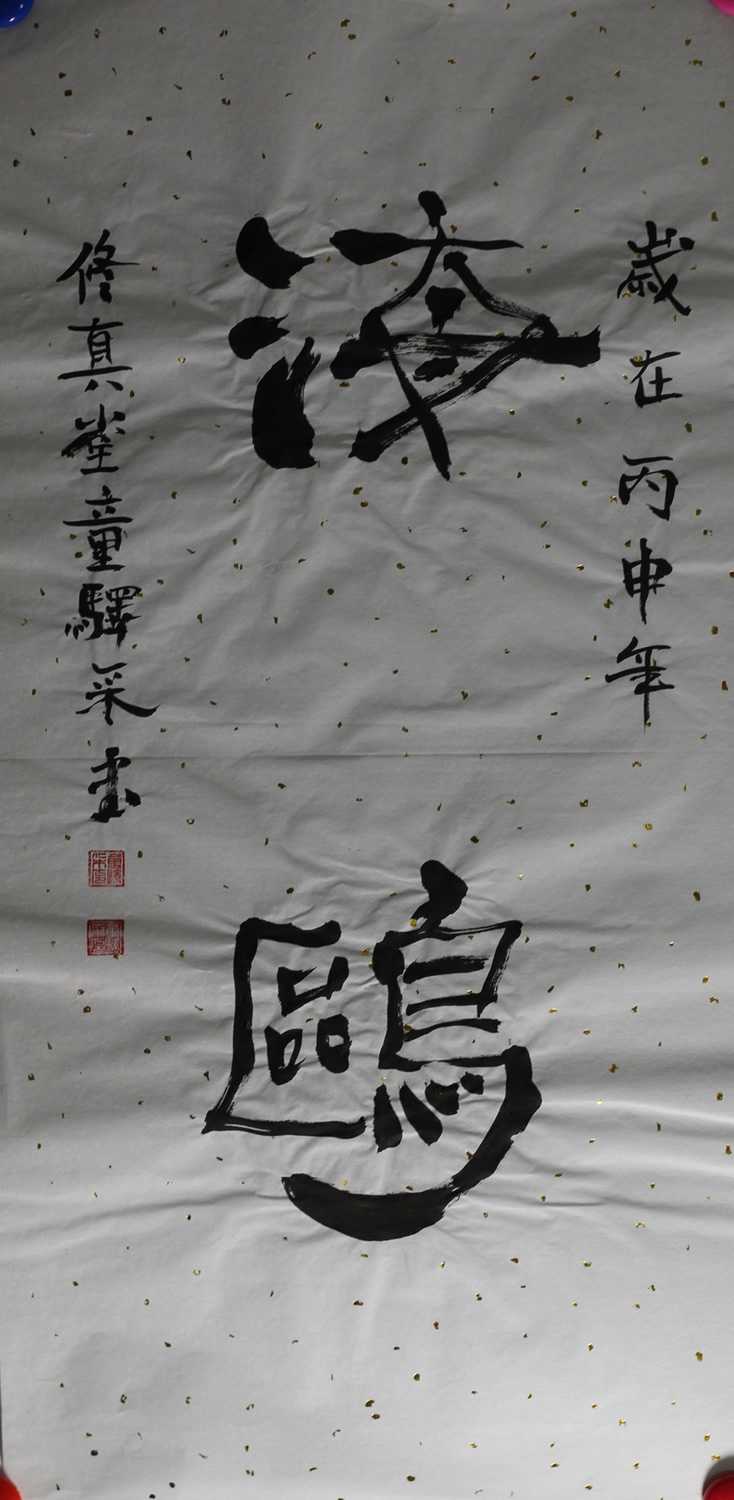 歲在丙申年
海鷗
修真堂童驛采書